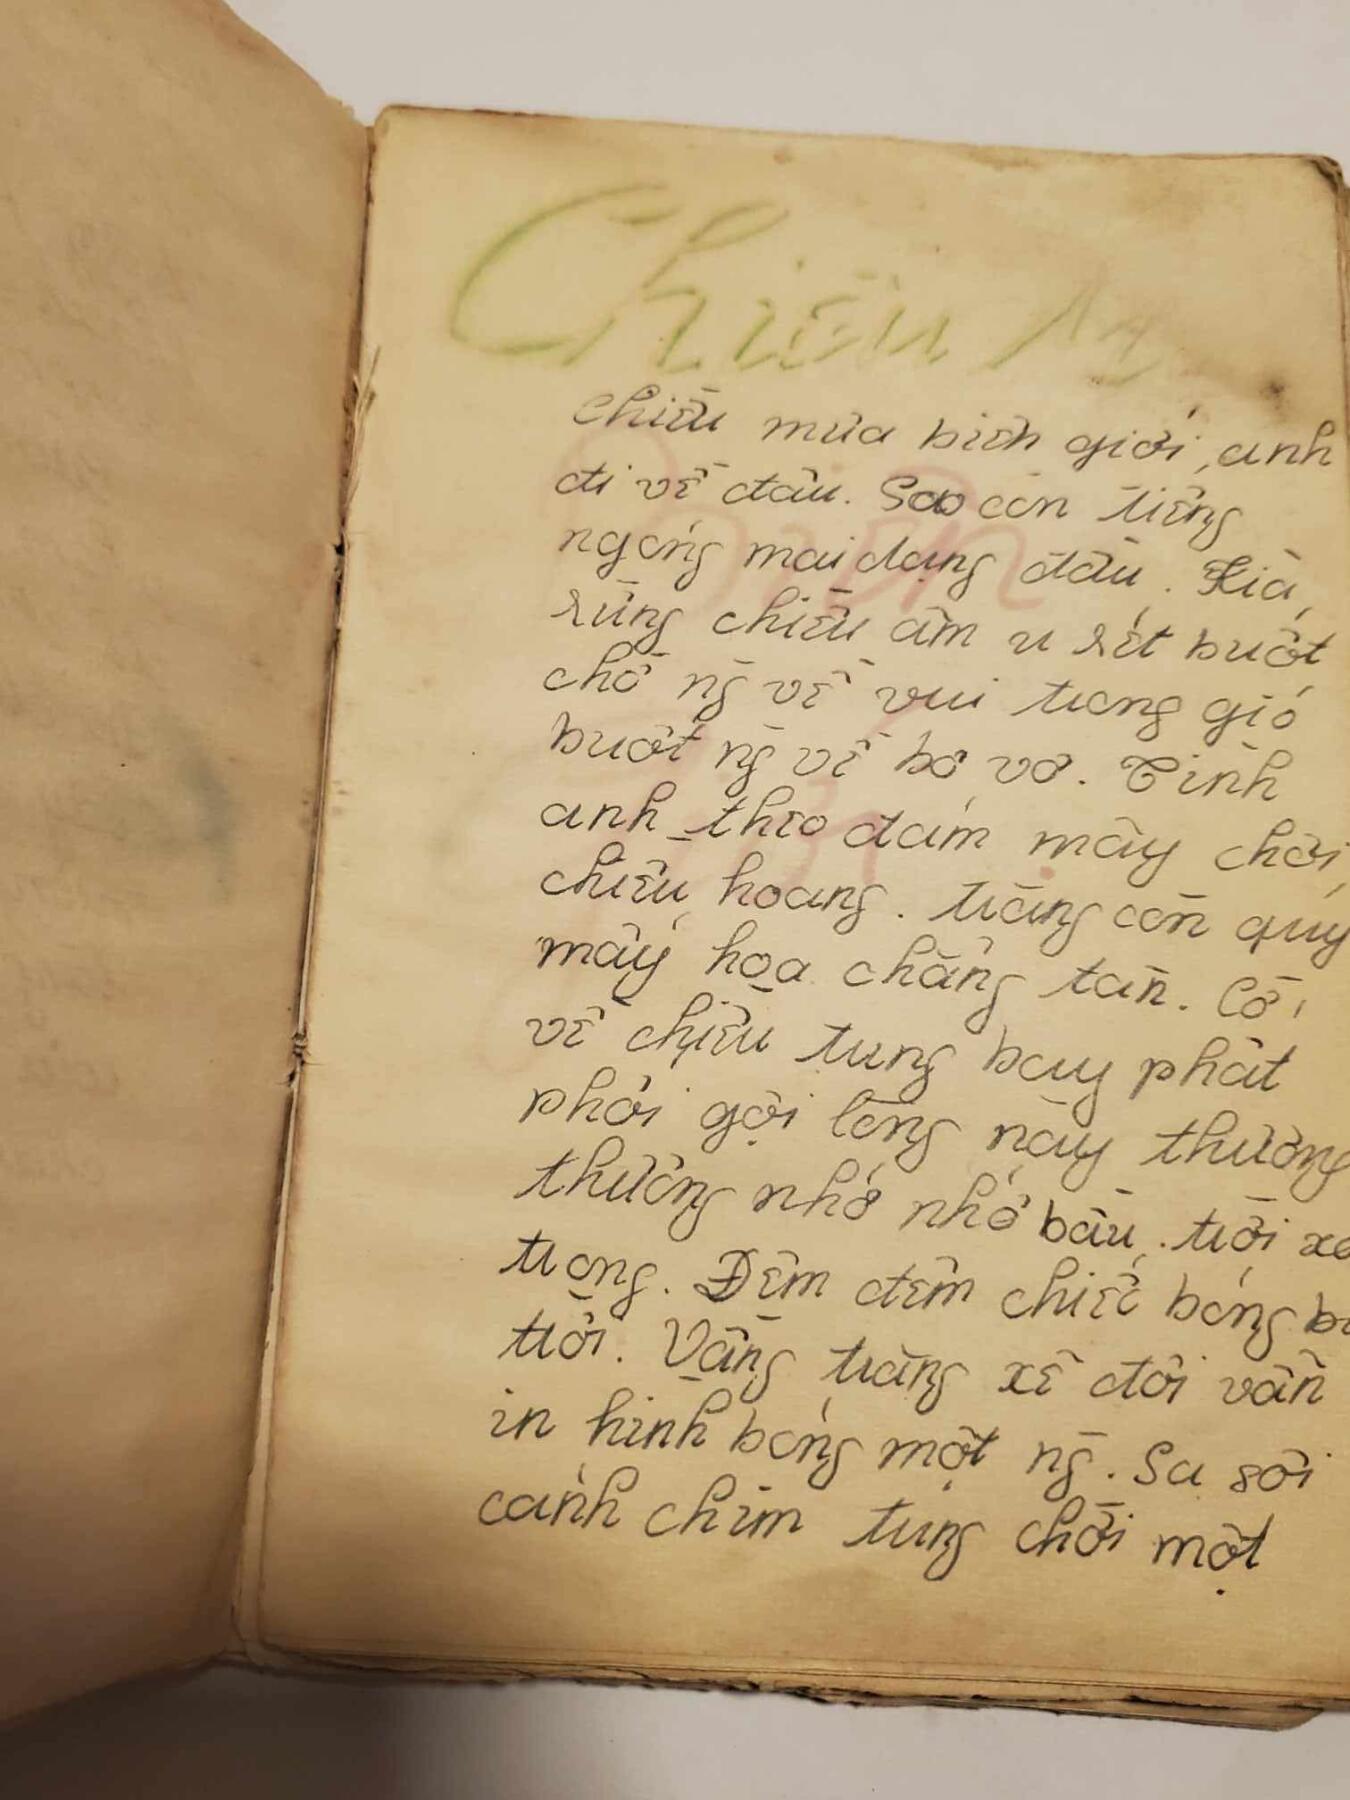 Chiều
chiều mưa biên giới, anh
đi về đâu. Sao còn tiếng
ngóng mai dạng đầu. Kià
rừng chiều âm u rét buốt
chờ ng̀ về vui trong gió
buốt ng̀ về bơ vơ. Tình
anh theo đám mây chơi
chiều hoang. trăng còn quý
mấy họa chăng tàn. Cờ
về chiều tung bay phất
phới gợi lòng này thương
thương nhớ nhớ bầu trời xa
trong. Đêm đêm chiếc bóng
trời. Vầng trăng xẻ đôi vẫn
in hình bóng một ng̀. Sa sôi
cánh chim tung chơi một
Biên
Giới